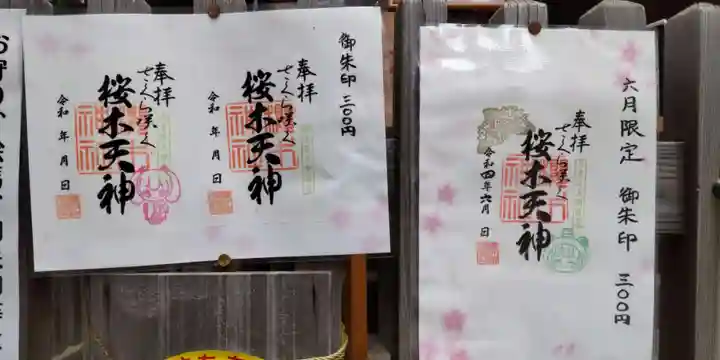 御朱印 三〇〇円
奉拝
さくら咲く
桜木天神
令和 年 月 日
奉拝
さくら咲く
桜木天神
令和 年 月 日
六月限定 御朱印 三〇〇円
奉拝
さくら咲く
桜木天神
令和四年六月 日